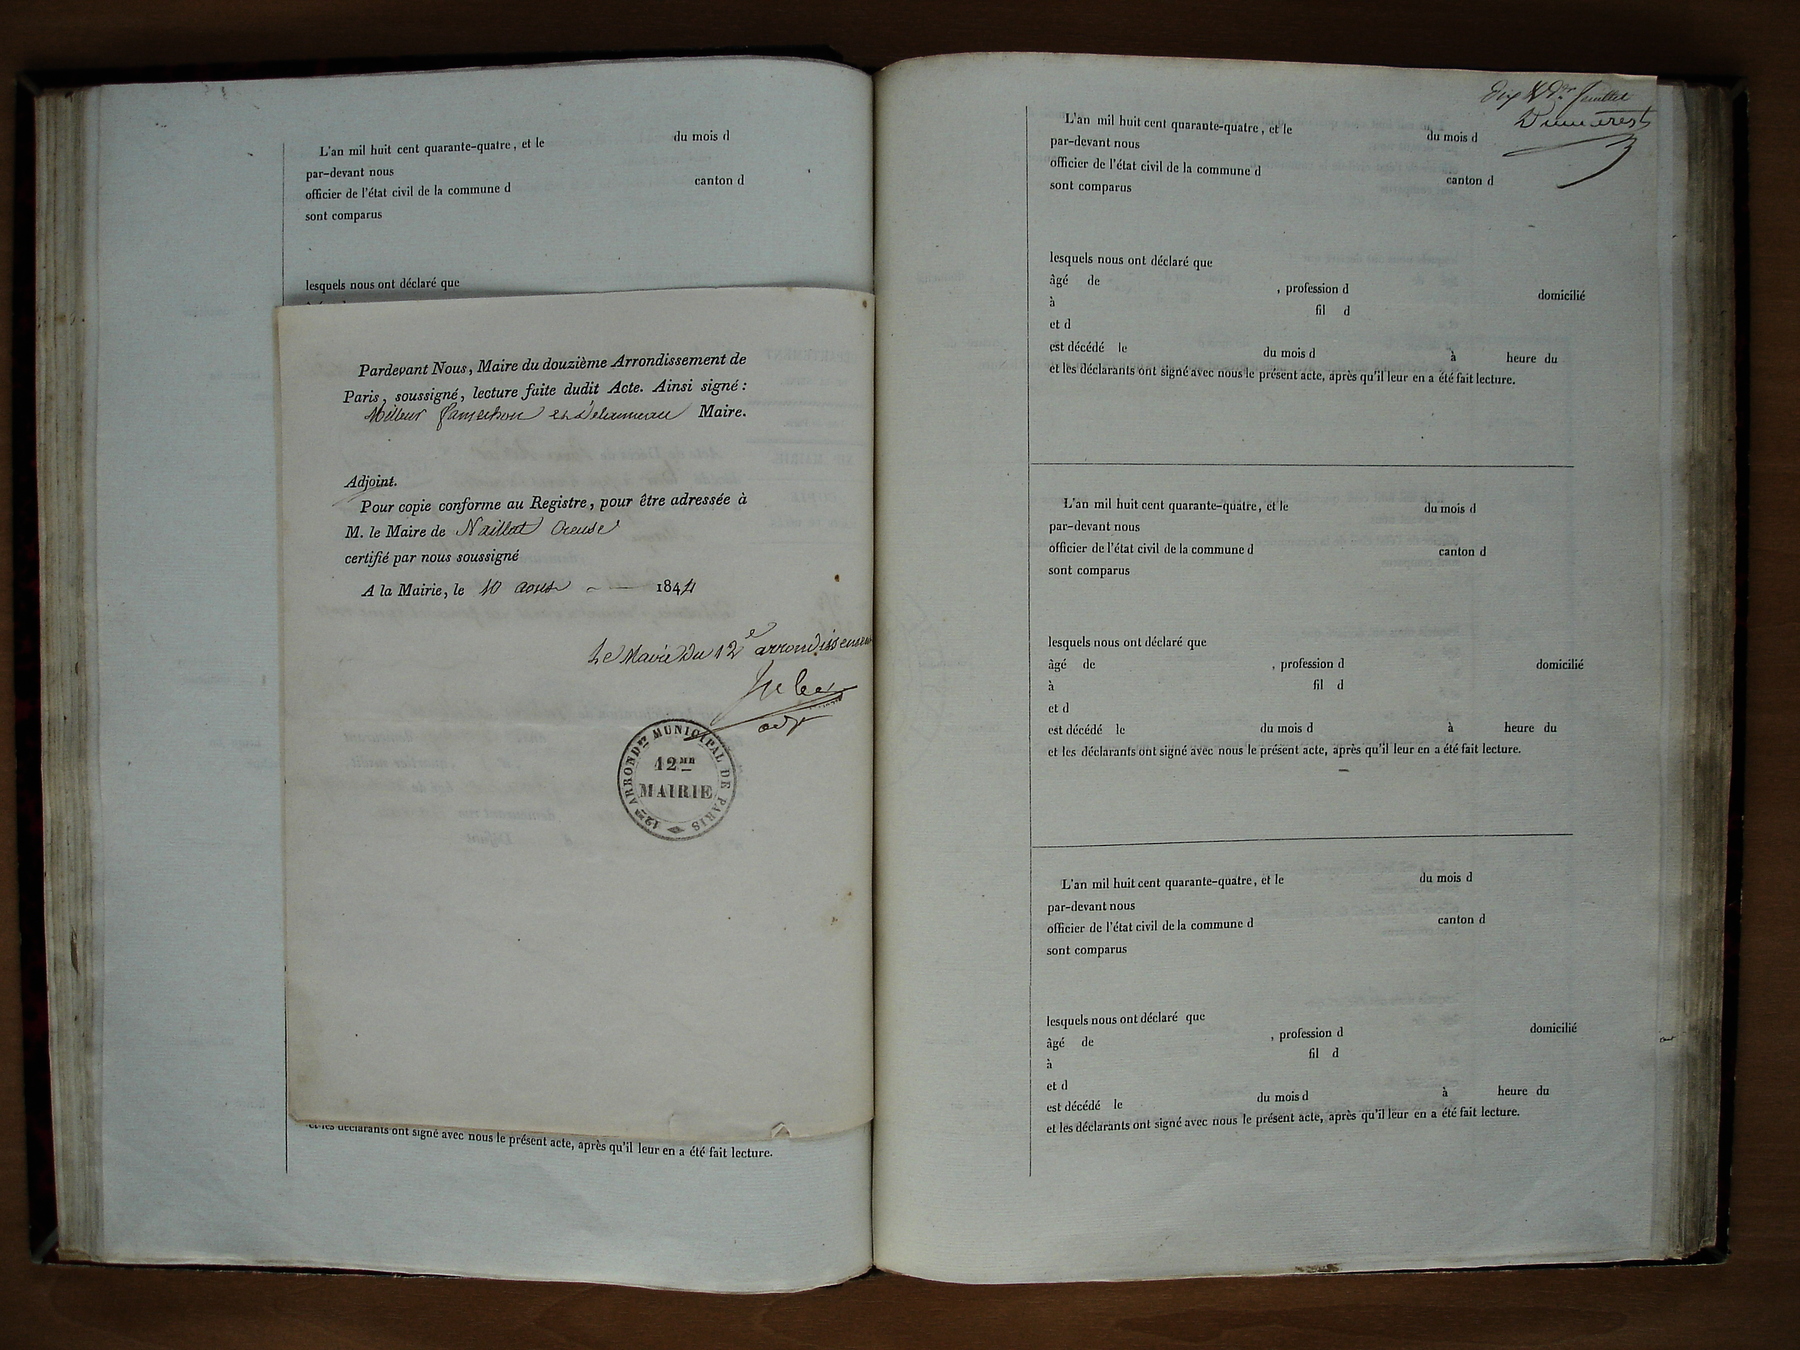 L'an mil huit cent quarante-quatre, et le du mois d
par-devant nous
officier de l'état civil de la commune d canton d
sont comparus
lesquels nous ont déclaré que
Pardevant Nous, Maire du douzième Arrondissement de
Paris, soussigné, lecture faite dudit Acte. Ainsi signé :
Milleur et Delanneau Maire.
Adjoint.
Pour copie conforme au Registre, pour être adressée à
M. le Maire de Naillat Creuse
certifié par nous soussigné
A la Mairie, le 10 aout 1844
Le Maire du 12e arrondissement
adjt
12me ARRONDnt MUNICIPAL DE PARIS
12ME
MAIRIE
et les déclarants ont signé avec nous le présent acte, après qu'il leur en a été fait lecture.
dix feuillet
Dumarest
L'an mil huit cent quarante-quatre, et le du mois d
par-devant nous
officier de l'état civil de la commune d canton d
sont comparus
lesquels nous ont déclaré que
âgé de , profession d domicilié
à fil d
et d
est décédé le du mois d à heure du
et les déclarants ont signé avec nous le présent acte, après qu'il leur en a été fait lecture.
L'an mil huit cent quarante-quatre, et le du mois d
par-devant nous
officier de l'état civil de la commune d canton d
sont comparus
lesquels nous ont déclaré que
âgé de , profession d domicilié
à fil d
et d
est décédé le du mois d à heure du
et les déclarants ont signé avec nous le présent acte, après qu'il leur en a été fait lecture.
L'an mil huit cent quarante-quatre, et le du mois d
par-devant nous
officier de l'état civil de la commune d canton d
sont comparus
lesquels nous ont déclaré que
âgé de , profession d domicilié
à fil d
et d
est décédé le du mois d à heure du
et les déclarants ont signé avec nous le présent acte, après qu'il leur en a été fait lecture.